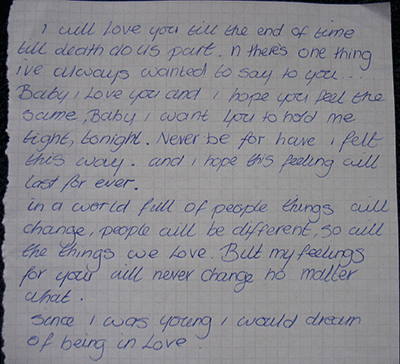 I will love you till the end of time
till death do us part. n there's one thing
ive always wanted to say to you...
Baby i love you and i hope you feel the
same, Baby i want you to hold me
tight, tonight. Never be for have i felt
this way. and i hope this feeling will
last for ever.
in a world full of people things will
change, people will be different, so will
the things we love. But my feelings
for your will never change no matter
what.
since i was young i would dream
of being in love.